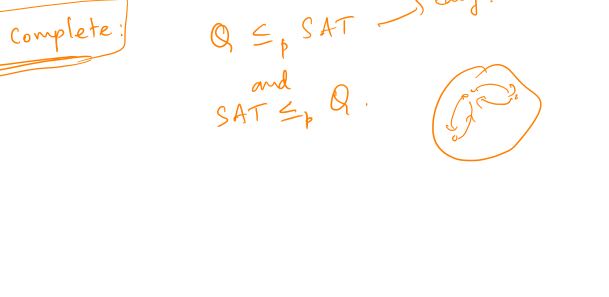 Complete:
Q ≤p SAT
and
SAT ≤p Q.